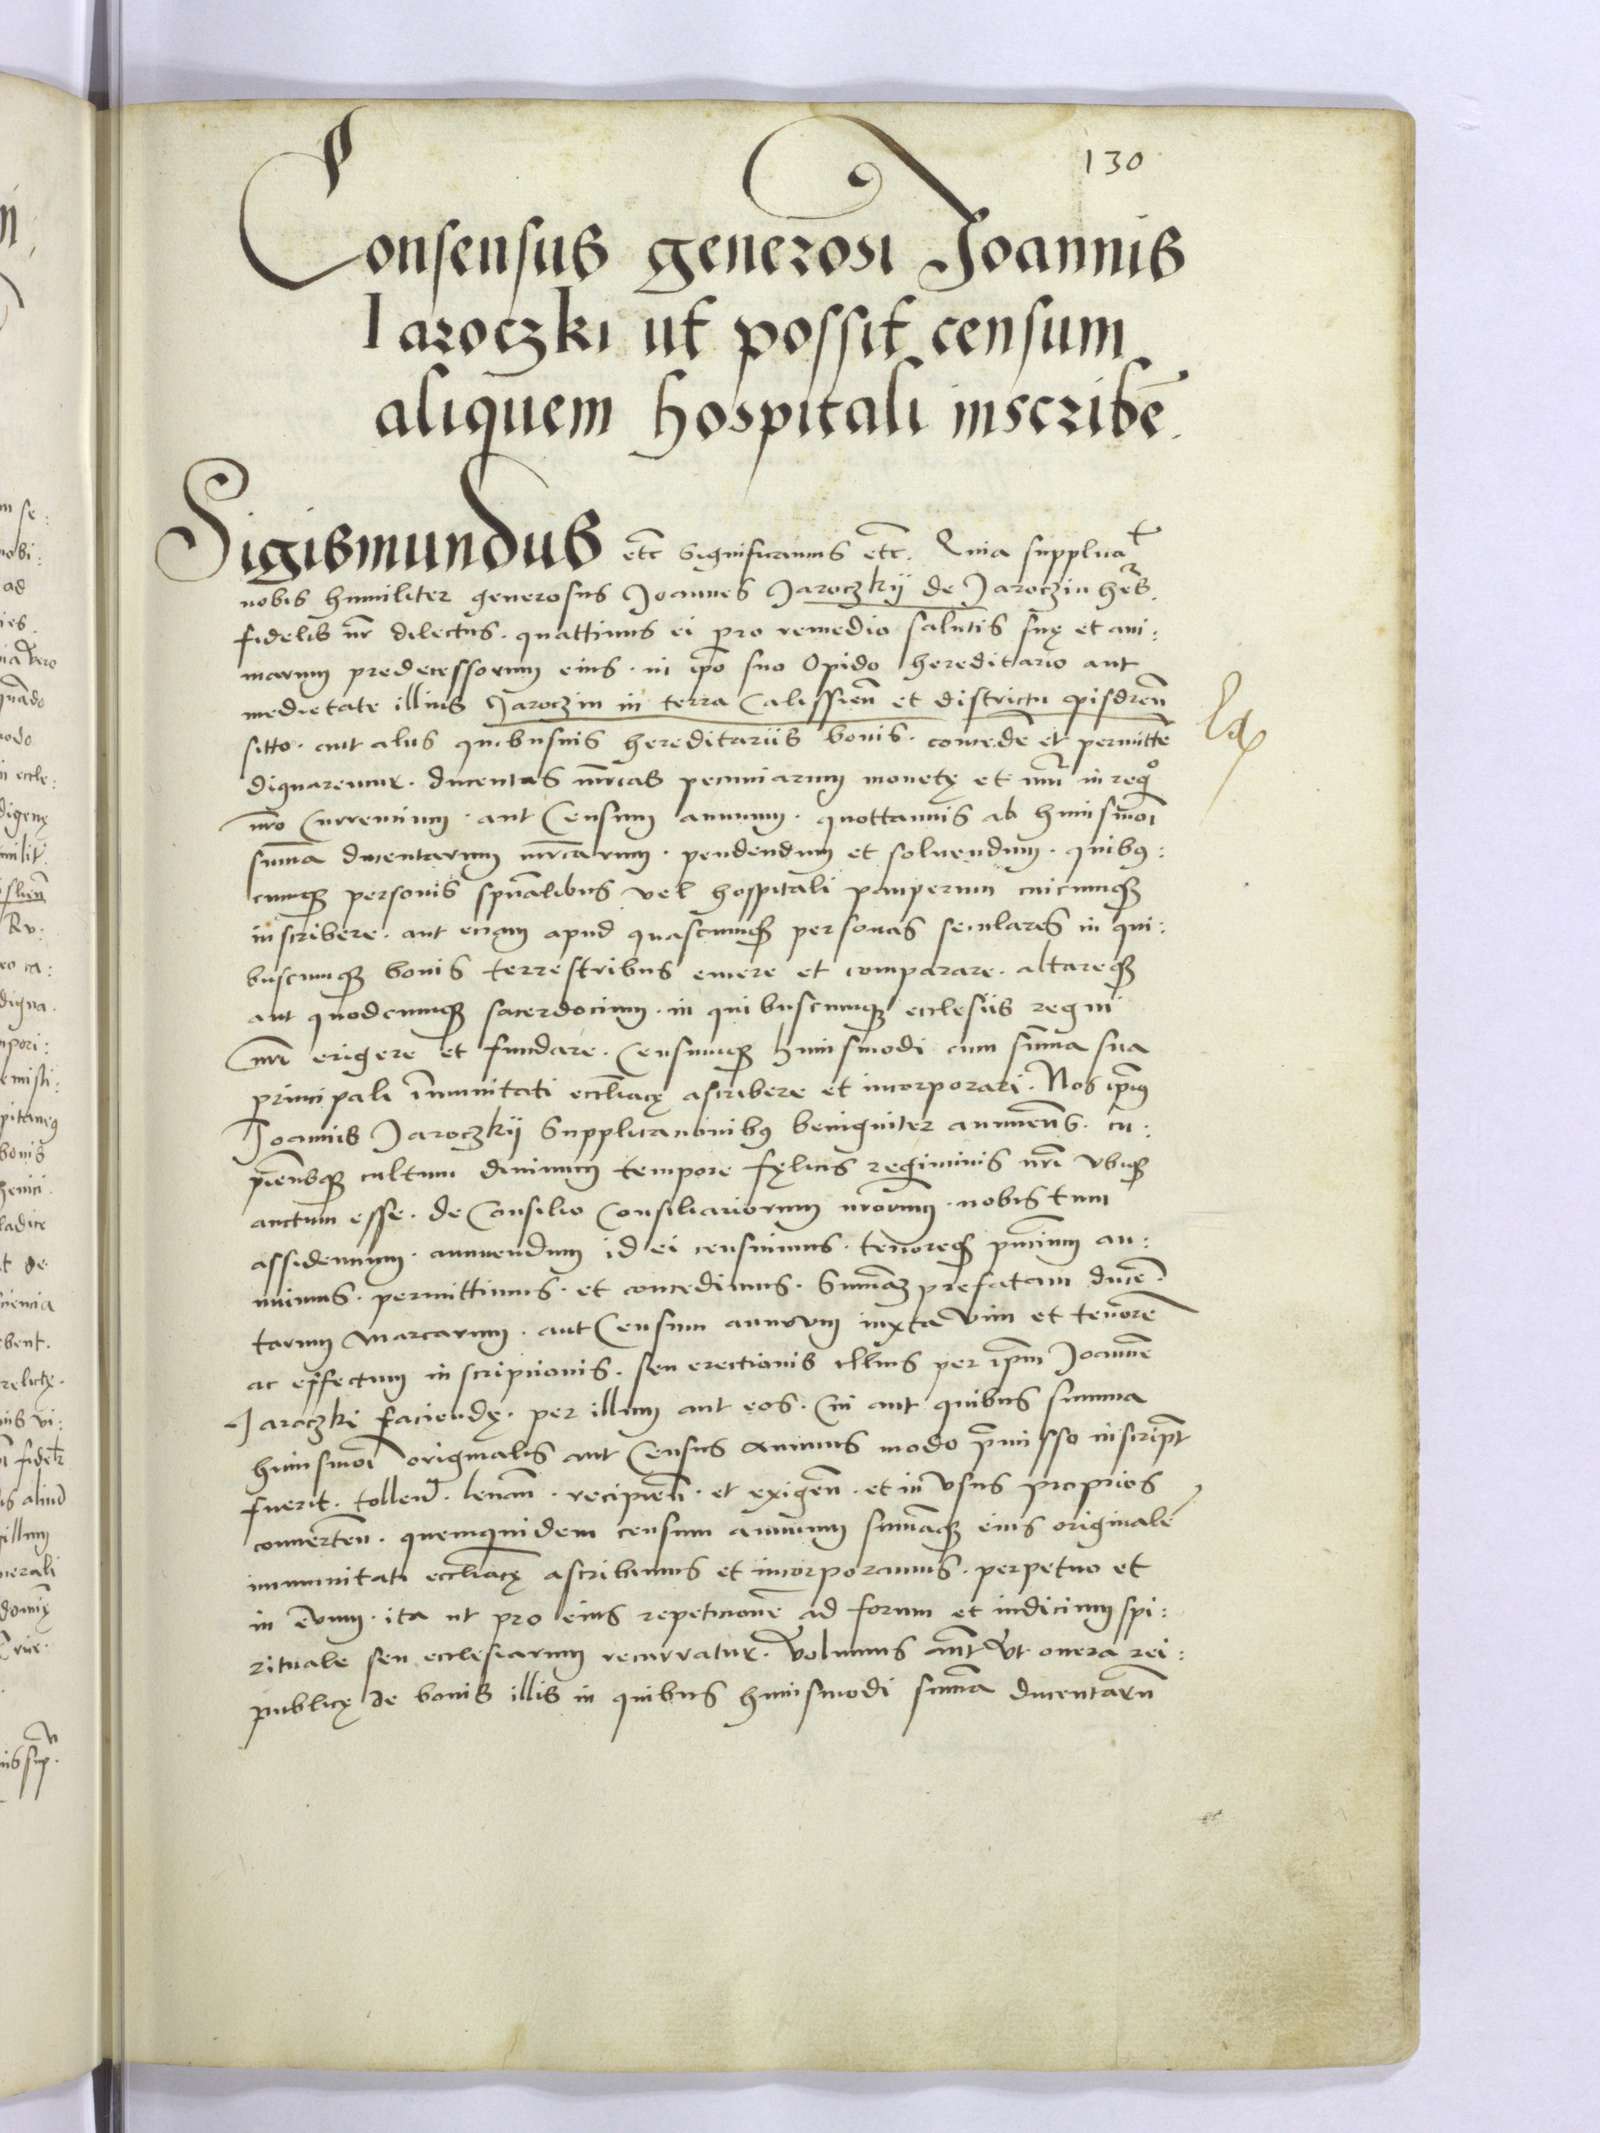 130
Consensus generosi Joannis
Iaroczki ut possit censum
aliquem hospitali inscribē.
Sigismundus etc̄ Significamus etc̄. Quia supplicat
nobis humiliter generosus Joannes Jaroczkÿ de Jaroczin her̄s.
fidelis nr̄ dilectus. quattinus ei pro remedio salutis suę et ani:
marum predecessorum eius. in ip̄o suo Opido hereditario aut
medietate illius Jaroczin in terra Calissien̄ et districtu pisdren̄
sitto. aut aliis quibusuis hereditariis bonis. concedē et permittē
dignaremur. ducentas mr̄cas pecuniarum monetę et nūi in regº
nr̄o Currencium. aut Censum annuum. quottannis ab huiusmōi
sum̄a ducentarum mr̄carum. pendendum et soluendum. quibꝯ:
cumqꝫ personis spūalibus vel hospitali pauperum cuicumqꝫ
inscribere. aut eciam apud quascumqꝫ personas seculares in qui:
buscumqꝫ bonis terrestribus emere et comparare. altareqꝫ
aut quodcumqꝫ sacerdocium. in quibuscumqꝫ ecclesiis regni
nr̄i erigere et fundare. Censumqꝫ huiusmodi cum sum̄a sua
principali im̄unitati eccl̄iacę ascribere et incorporari. Nos ip̄ius
Joannis Jaroczkÿ Supplicacionibꝯ benigniter annuen̄s. cu:
pien̄sqꝫ cultum diuinum tempore fęlicis regiminis nr̄i vbiqꝫ
auctum esse. de Consilio Consiliariorum nr̄orum. nobis tum
assidencium. annuendum id ei censuimus. tenoreqꝫ pn̄cium an:
nuimus. permittimus. et concedimus. Sum̄aꝫ prefatam ducē:
tarum Marcarum. aut Censum annuum iuxta vim et tenorē
ac effectum inscripcionis. seu erectionis illius per ip̄m Joannē
Jaroczki faciendę. per illum aut eos. cui aut quibus summa
huiusmōi originalis aut Census annuus modo p̄misso inscript
fuerit. tollend̄. leuan̄. recipien̄. et exigen̄. et in vsus proprios
conuerten̄. quemquidem censum annuum sum̄aqꝫ eius originalē
immunitati eccl̄iacę ascribimus et incorporamus. perpetuo et
in ēuum. ita ut pro eius repeticionē ad forum et iudicium spi:
rituale seu ecclesiarum recurratur. Volumus aūt vt onera rei:
publicę de bonis illis in quibus huiusmodi sum̄a ducentarū